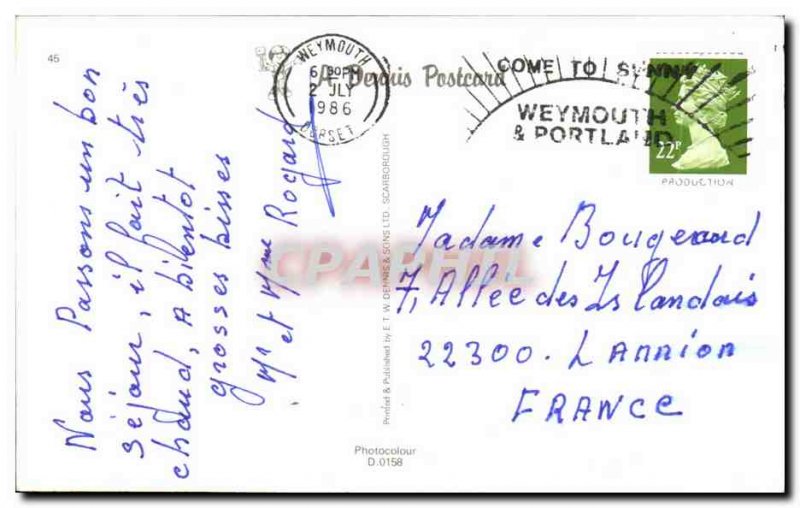 45
WEYMOUTH
6 30PM
2 JLY
1986
DORSET
A Dennis Postcard
COME TO SUNNY
WEYMOUTH
& PORTLAND
22P
PRODUCTION
Nous Passons un bon
séjour, il fait très
chaud, A bientot
grosses bisses
Mr et Mme Rogard
Printed & Published by E.T.W. DENNIS & SONS LTD., SCARBOROUGH
CPAPHIL
Madame Bougeard
7, Allée des Islandais
22300. Lannion
FRANCE
Photocolour
D.0158